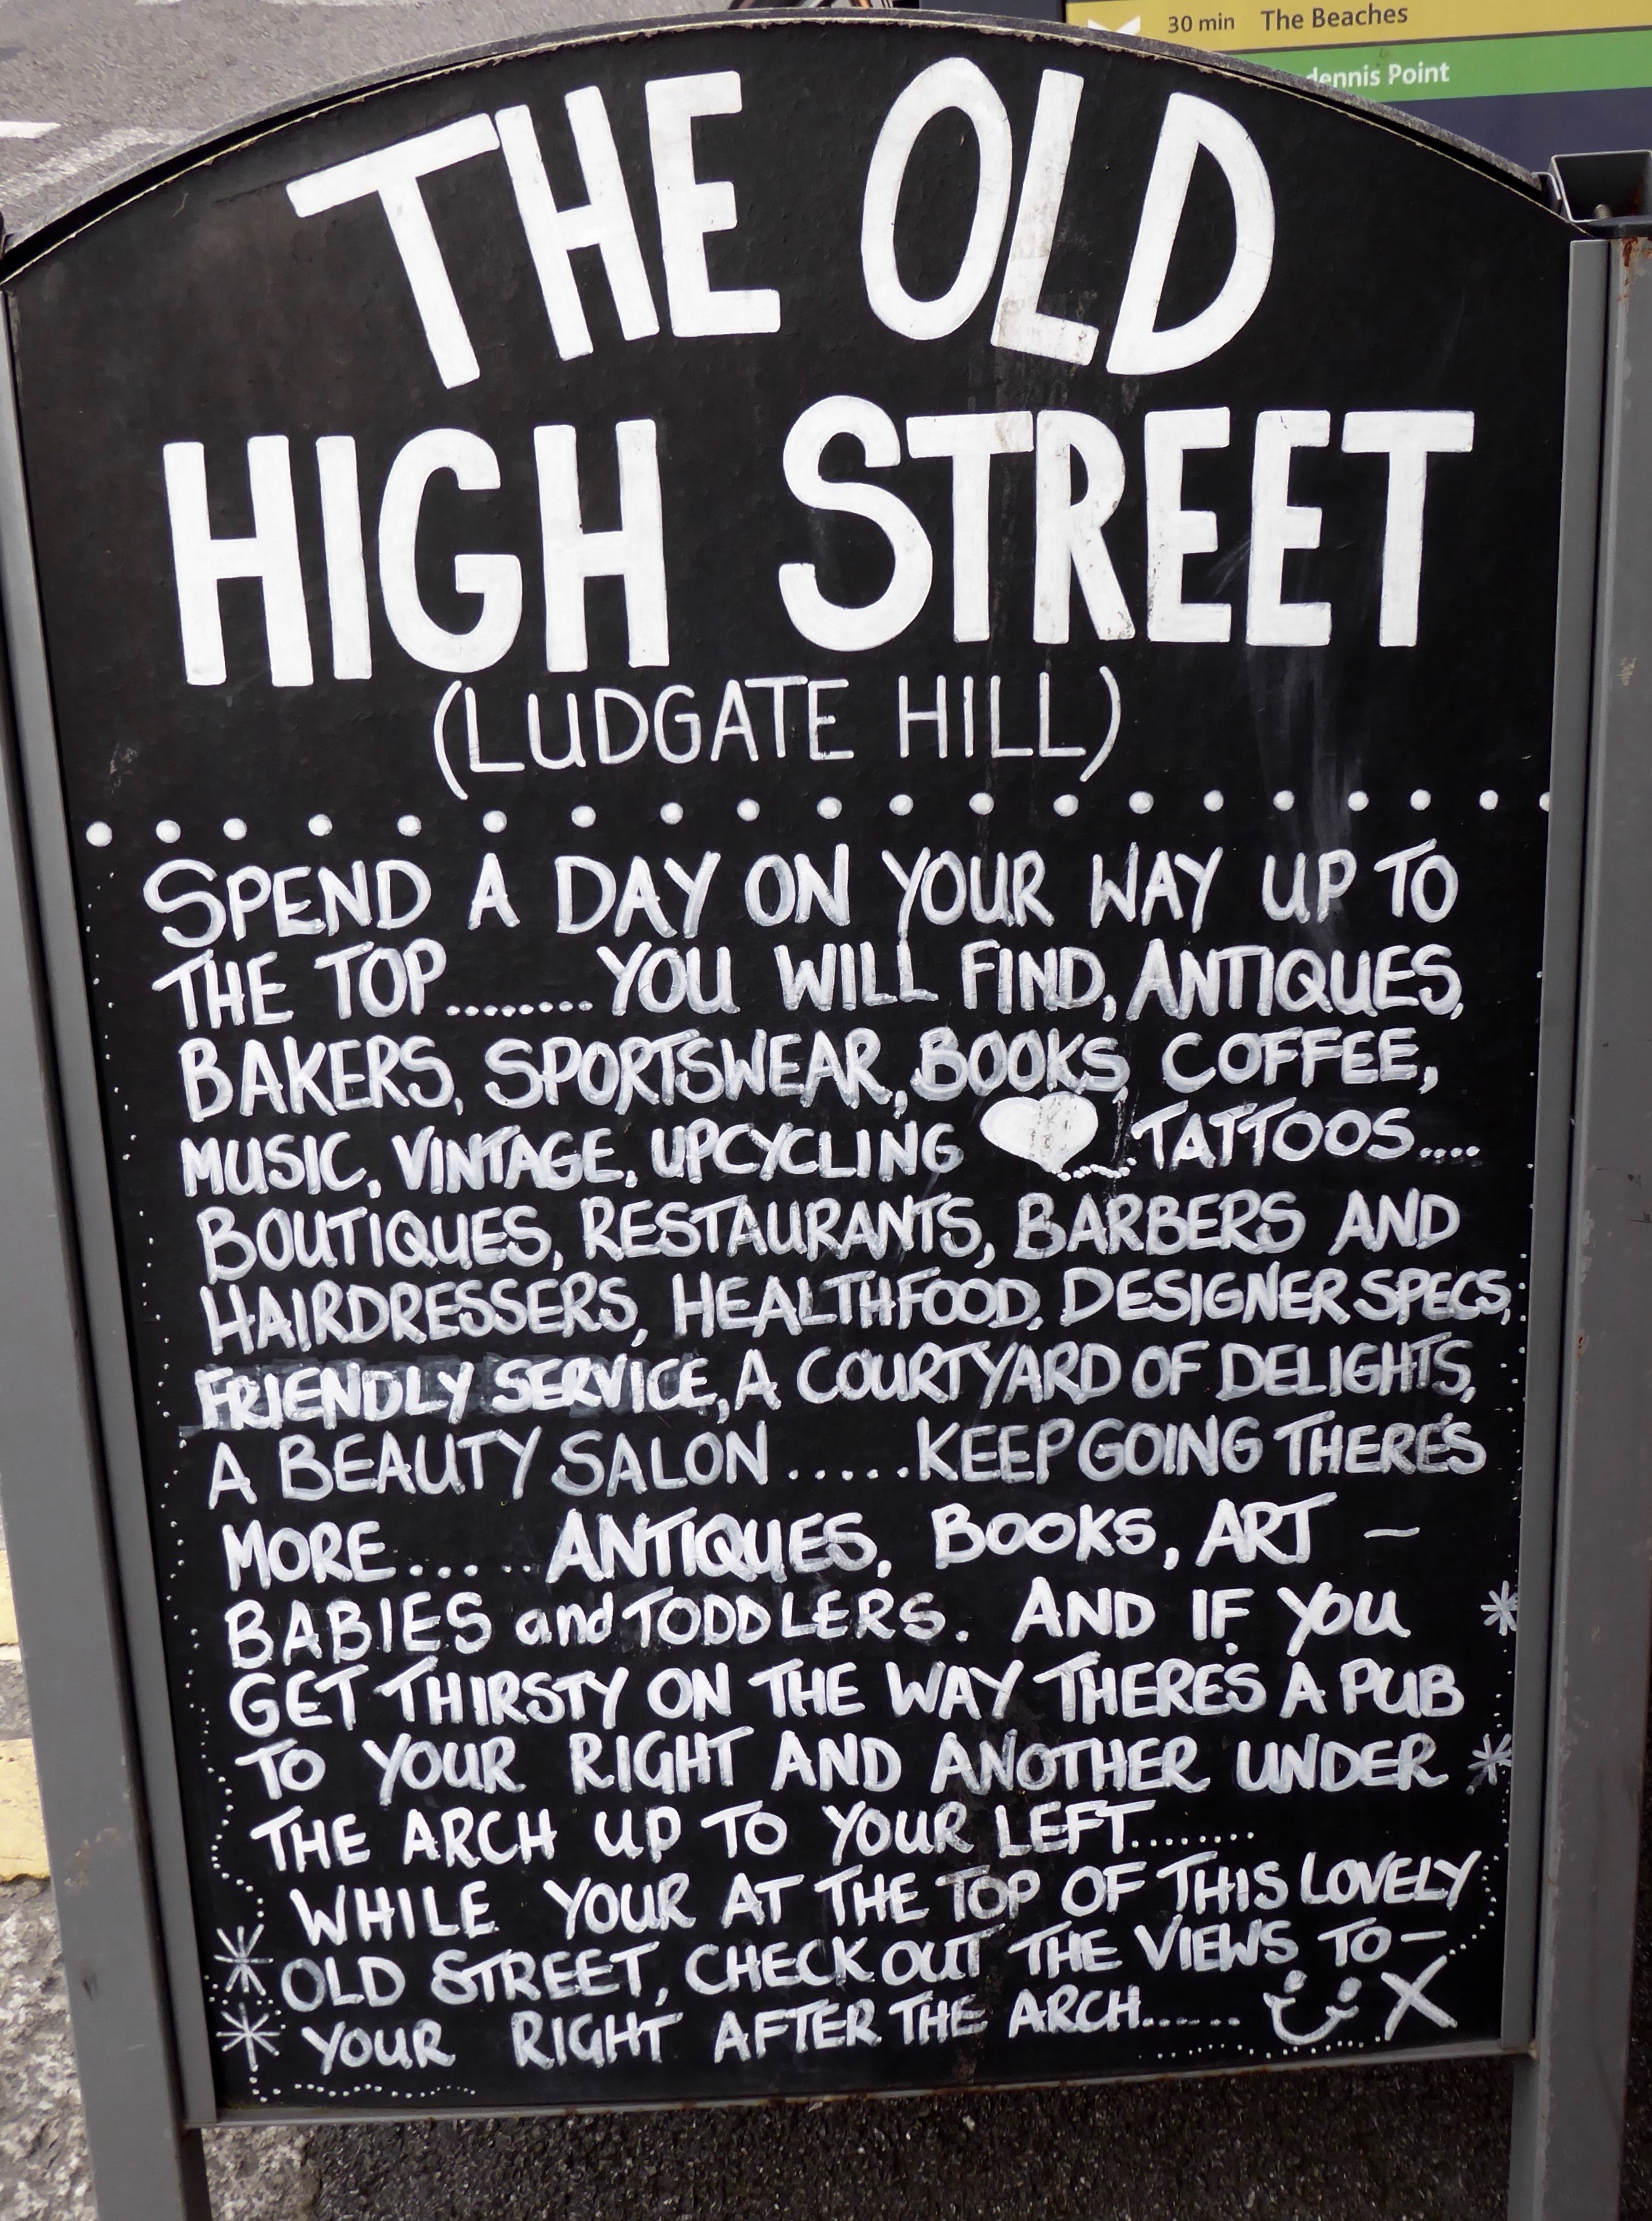 30 min The Beaches
dennis Point
THE OLD
HIGH STREET
(LUDGATE HILL)
SPEND A DAY ON YOUR WAY UP TO
THE TOP........YOU WILL FIND, ANTIQUES,
BAKERS, SPORTSWEAR, BOOKS, COFFEE,
MUSIC, VINTAGE, UPCYCLING TATTOOS....
BOUTIQUES, RESTAURANTS, BARBERS AND
HAIRDRESSERS, HEALTHFOOD, DESIGNER SPECS,
FRIENDLY SERVICE, A COURTYARD OF DELIGHTS,
A BEAUTY SALON ......KEEP GOING THERE'S
MORE..... ANTIQUES, BOOKS, ART –
BABIES and TODDLERS. AND IF YOU
GET THIRSTY ON THE WAY THERE'S A PUB
TO YOUR RIGHT AND ANOTHER UNDER
THE ARCH UP TO YOUR LEFT........
WHILE YOUR AT THE TOP OF THIS LOVELY
OLD STREET, CHECK OUT THE VIEWS TO –
YOUR RIGHT AFTER THE ARCH...... X